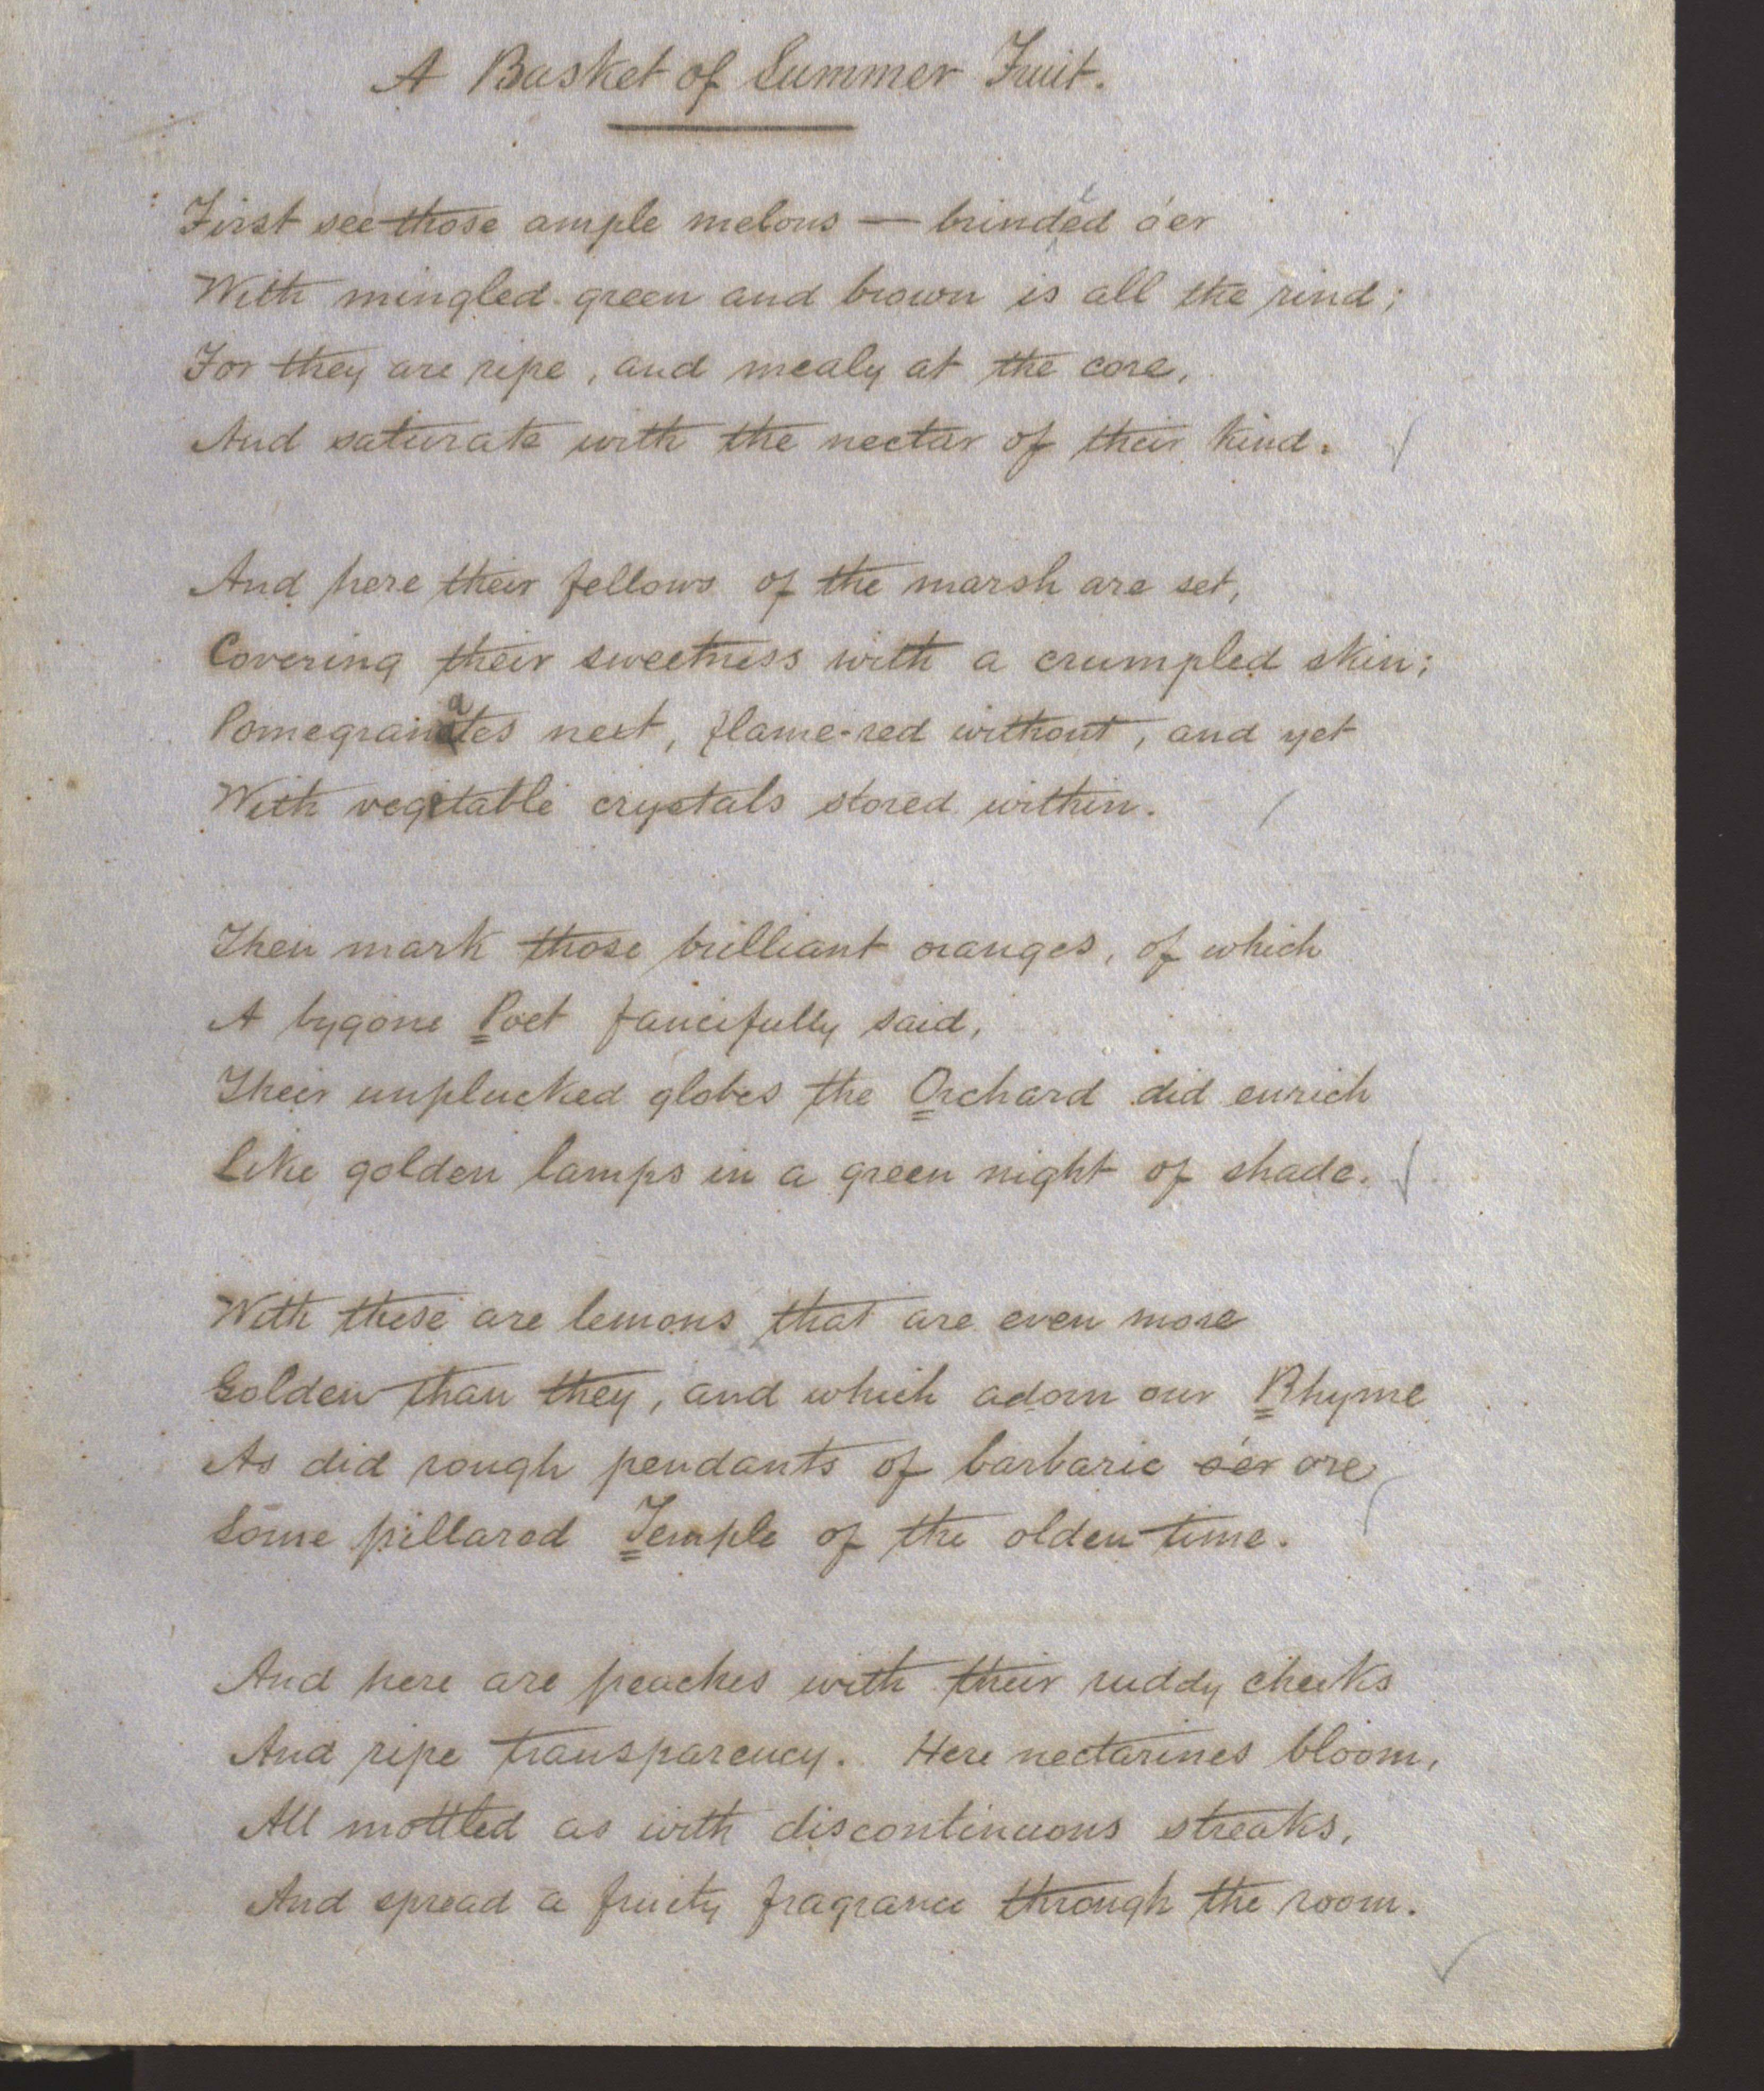 A Basket of Summer Fruit.
First see those ample melons — brindéd o'er
With mingled green and brown is all the rind;
For they are ripe, and mealy at the core,
And saturate with the nectar of their kind.
And here their fellows of the marsh are set,
Covering their sweetness with a crumpled skin;
Pomegranates next, flame-red without, and yet
With vegetable crystals stored within.
Then mark those brilliant oranges, of which
A bygone Poet fancifully said,
Their unplucked globes the Orchard did enrich
Like golden lamps in a green night of shade.
With these are lemons that are even more
Golden than they, and which adorn our Rhyme
As did rough pendants of barbaric o'er ore
Some pillared Temple of the olden time.
And here are peaches with their ruddy cheeks
And ripe transparency. Here nectarines bloom,
All mottled as with discontinuous streaks,
And spread a fruity fragrance through the room.